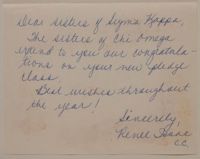 Dear sisters of Sigma Kappa,
The sisters of Chi Omega
extend to you our congratula-
tions on your new pledge
class.
Best wishes throughout
the year!
Sincerely,
Renee
C.C.